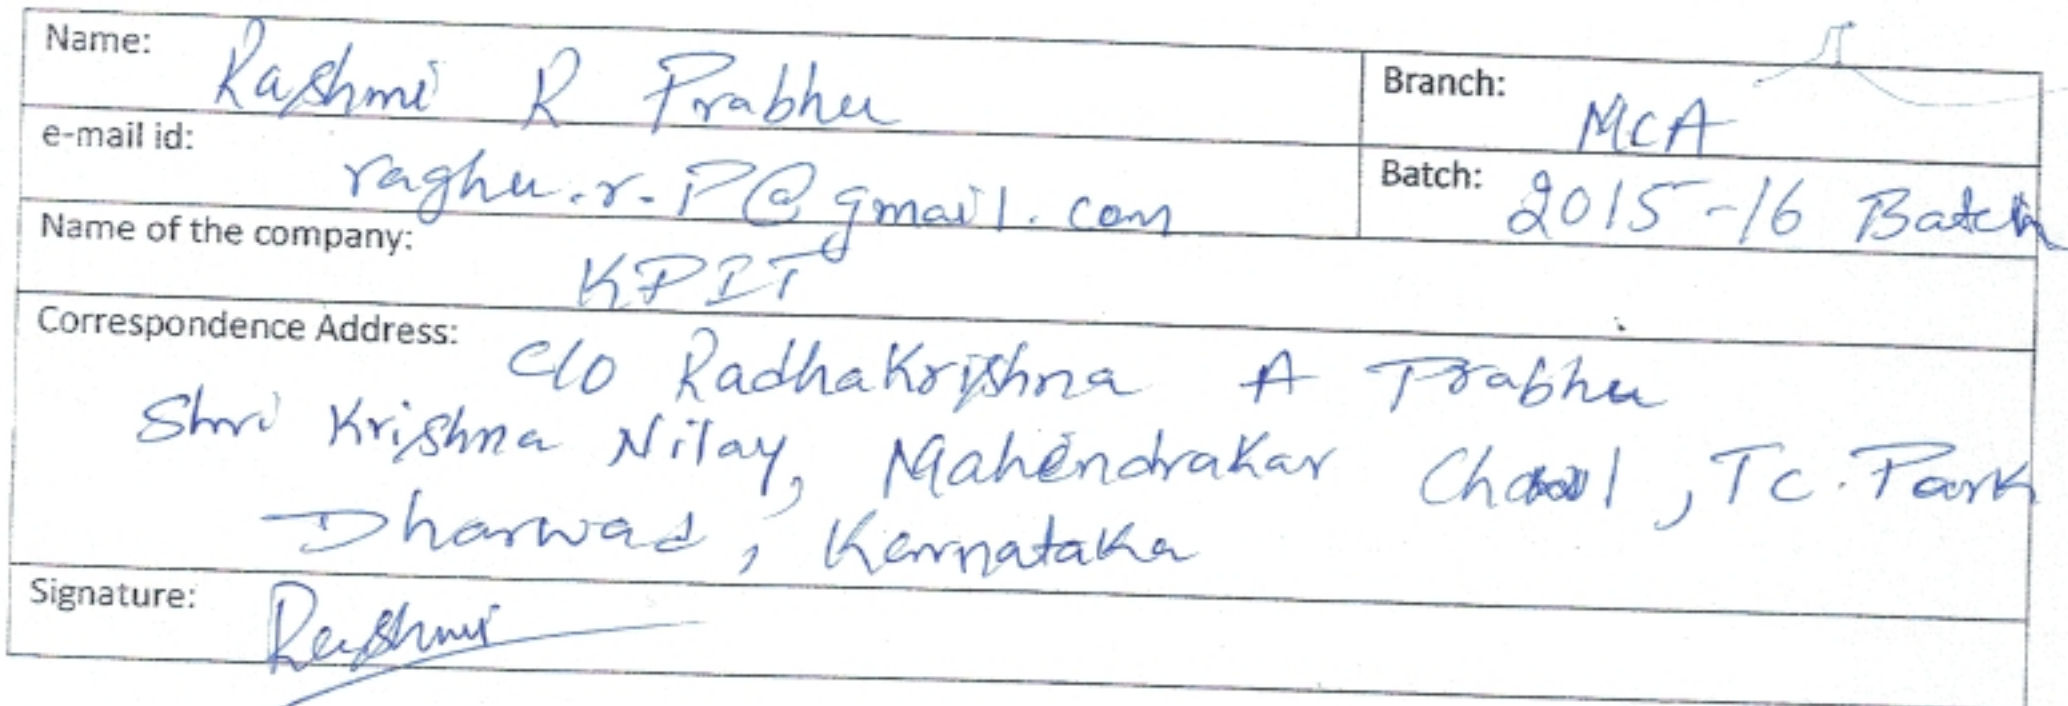 Name: Rashmi R Prabhu
Branch: MCA
e-mail id: raghu.r.P@gmail.com
Batch: 2015-16 Batch
Name of the company: KPIT
Correspondence Address: C/o RadhaKrishna A Prabhu
Shri Krishna Nilay, Mahendrakar Chawl, Tc. Park
Dharwad, Karnataka
Signature: Rashmi